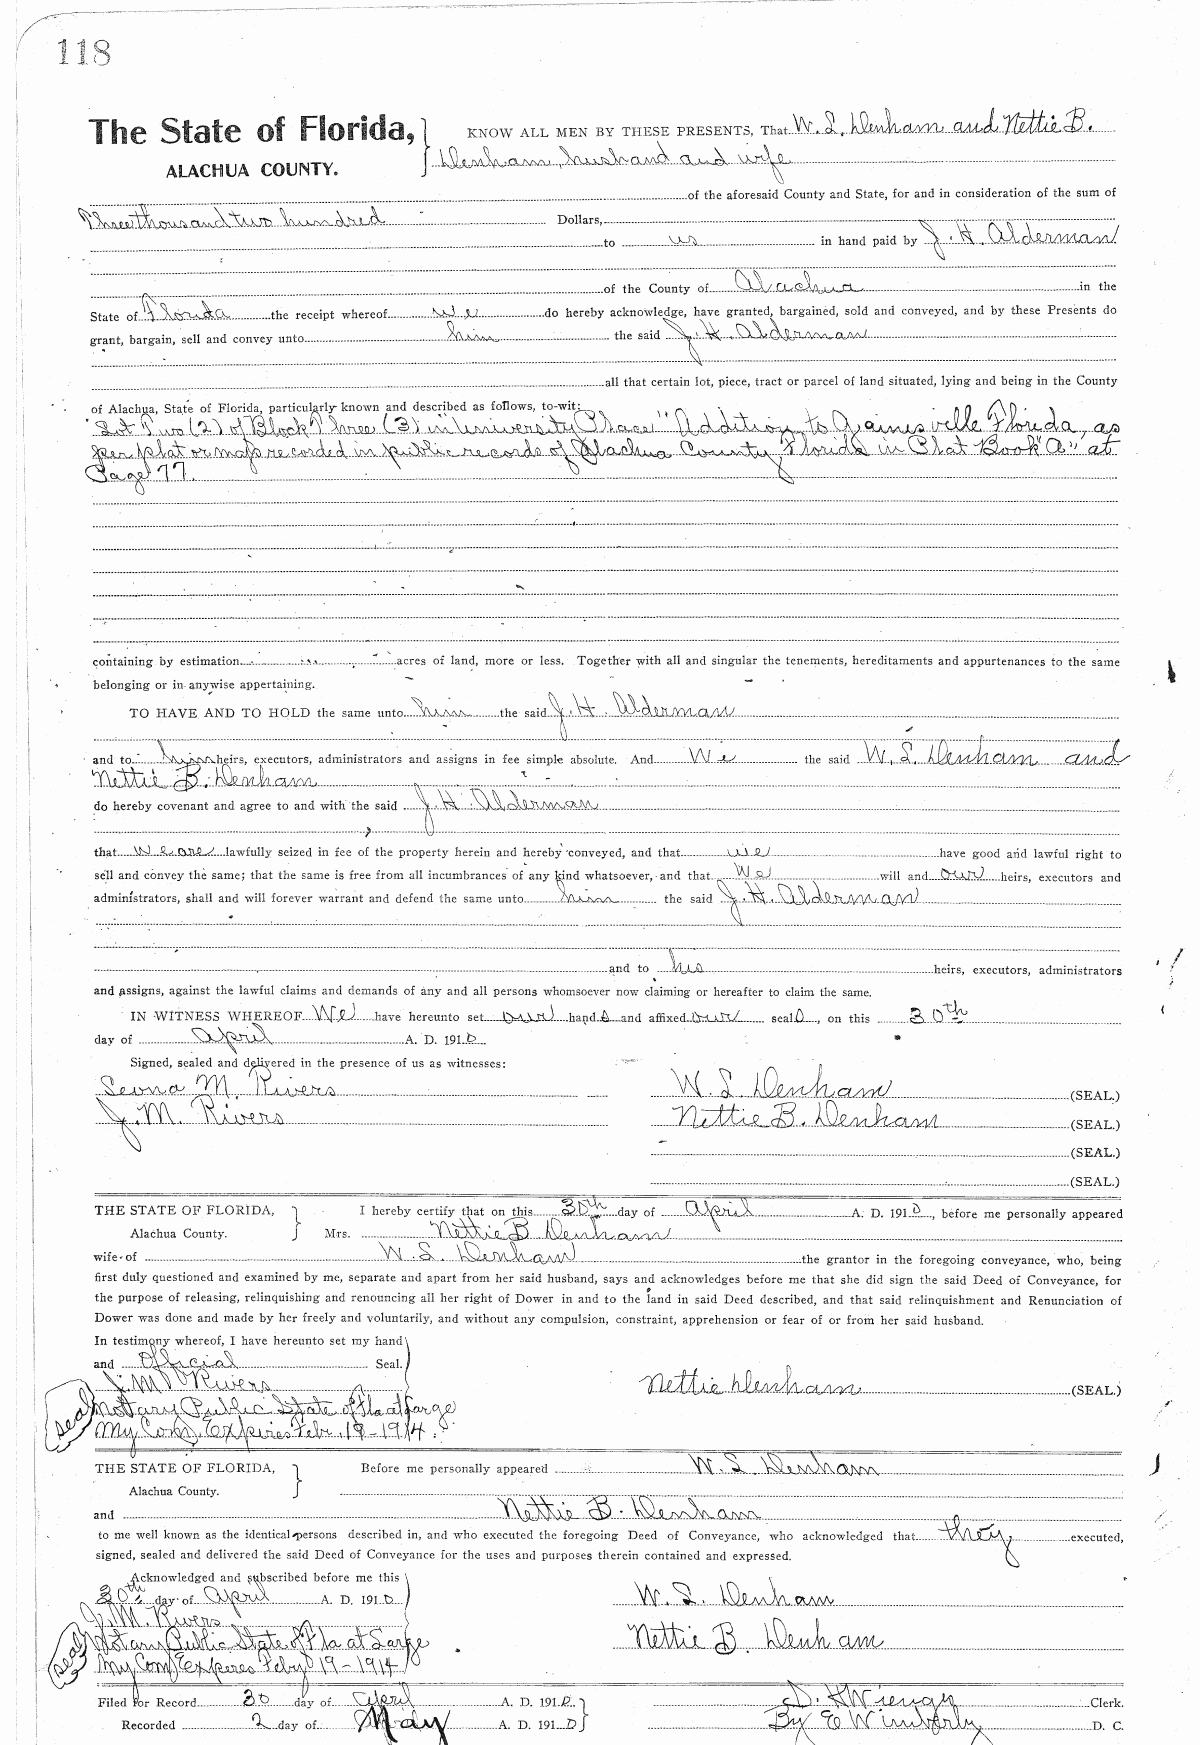 118
The State of Florida, KNOW ALL MEN BY THESE PRESENTS, That W. S. Denham and Nettie B.
ALACHUA COUNTY. Denham, husband and wife
of the aforesaid County and State, for and in consideration of the sum of
Three thousand two hundred Dollars,
to us in hand paid by J. H. Alderman
of the County of Alachua in the
State of Florida the receipt whereof we do hereby acknowledge, have granted, bargained, sold and conveyed, and by these Presents do
grant, bargain, sell and convey unto him the said J. H. Alderman
all that certain lot, piece, tract or parcel of land situated, lying and being in the County
of Alachua, State of Florida, particularly known and described as follows, to-wit:
Lot Two (2) of Block Three (3) in "University Place" Addition to Gainesville Florida, as
per plat or map recorded in public records of Alachua County, Florida in Plat Book "A" at
Page 77.
containing by estimation acres of land, more or less. Together with all and singular the tenements, hereditaments and appurtenances to the same
belonging or in anywise appertaining.
TO HAVE AND TO HOLD the same unto him the said J. H. Alderman
and to him heirs, executors, administrators and assigns in fee simple absolute. And We the said W. S. Denham and
Nettie B. Denham
do hereby covenant and agree to and with the said J. H. Alderman
that we are lawfully seized in fee of the property herein and hereby conveyed, and that we have good and lawful right to
sell and convey the same; that the same is free from all incumbrances of any kind whatsoever, and that We will and our heirs, executors and
administrators, shall and will forever warrant and defend the same unto him the said J. H. Alderman
and to his heirs, executors, administrators
and assigns, against the lawful claims and demands of any and all persons whomsoever now claiming or hereafter to claim the same.
IN WITNESS WHEREOF We have hereunto set our hands and affixed our seals, on this 30th
day of April A. D. 1910
Signed, sealed and delivered in the presence of us as witnesses:
Seona M. Rivers W. S. Denham (SEAL.)
J. M. Rivers Nettie B. Denham (SEAL.)
(SEAL.)
(SEAL.)
THE STATE OF FLORIDA, I hereby certify that on this 30th day of April A. D. 1910, before me personally appeared
Alachua County. Mrs. Nettie B Denham
wife of W. S. Denham the grantor in the foregoing conveyance, who, being
first duly questioned and examined by me, separate and apart from her said husband, says and acknowledges before me that she did sign the said Deed of Conveyance, for
the purpose of releasing, relinquishing and renouncing all her right of Dower in and to the land in said Deed described, and that said relinquishment and Renunciation of
Dower was done and made by her freely and voluntarily, and without any compulsion, constraint, apprehension or fear of or from her said husband.
In testimony whereof, I have hereunto set my hand
and Official Seal.
J. M. Rivers Nettie Denham (SEAL.)
seal Notary Public State of Fla at Large
My Com. Expires Febr. 19-1914.
THE STATE OF FLORIDA, Before me personally appeared W. S. Denham
Alachua County.
and Nettie B. Denham
to me well known as the identical persons described in, and who executed the foregoing Deed of Conveyance, who acknowledged that they executed,
signed, sealed and delivered the said Deed of Conveyance for the uses and purposes therein contained and expressed.
Acknowledged and subscribed before me this
30th day of April A. D. 1910 W. S. Denham
J. M. Rivers
seal Notary Public State of Fla at Large Nettie B Denham
My Com Expires Feby 19-1914
Filed for Record 30 day of April A. D. 1910. Clerk.
Recorded 2 day of May A. D. 1910 By E Wimberly D. C.